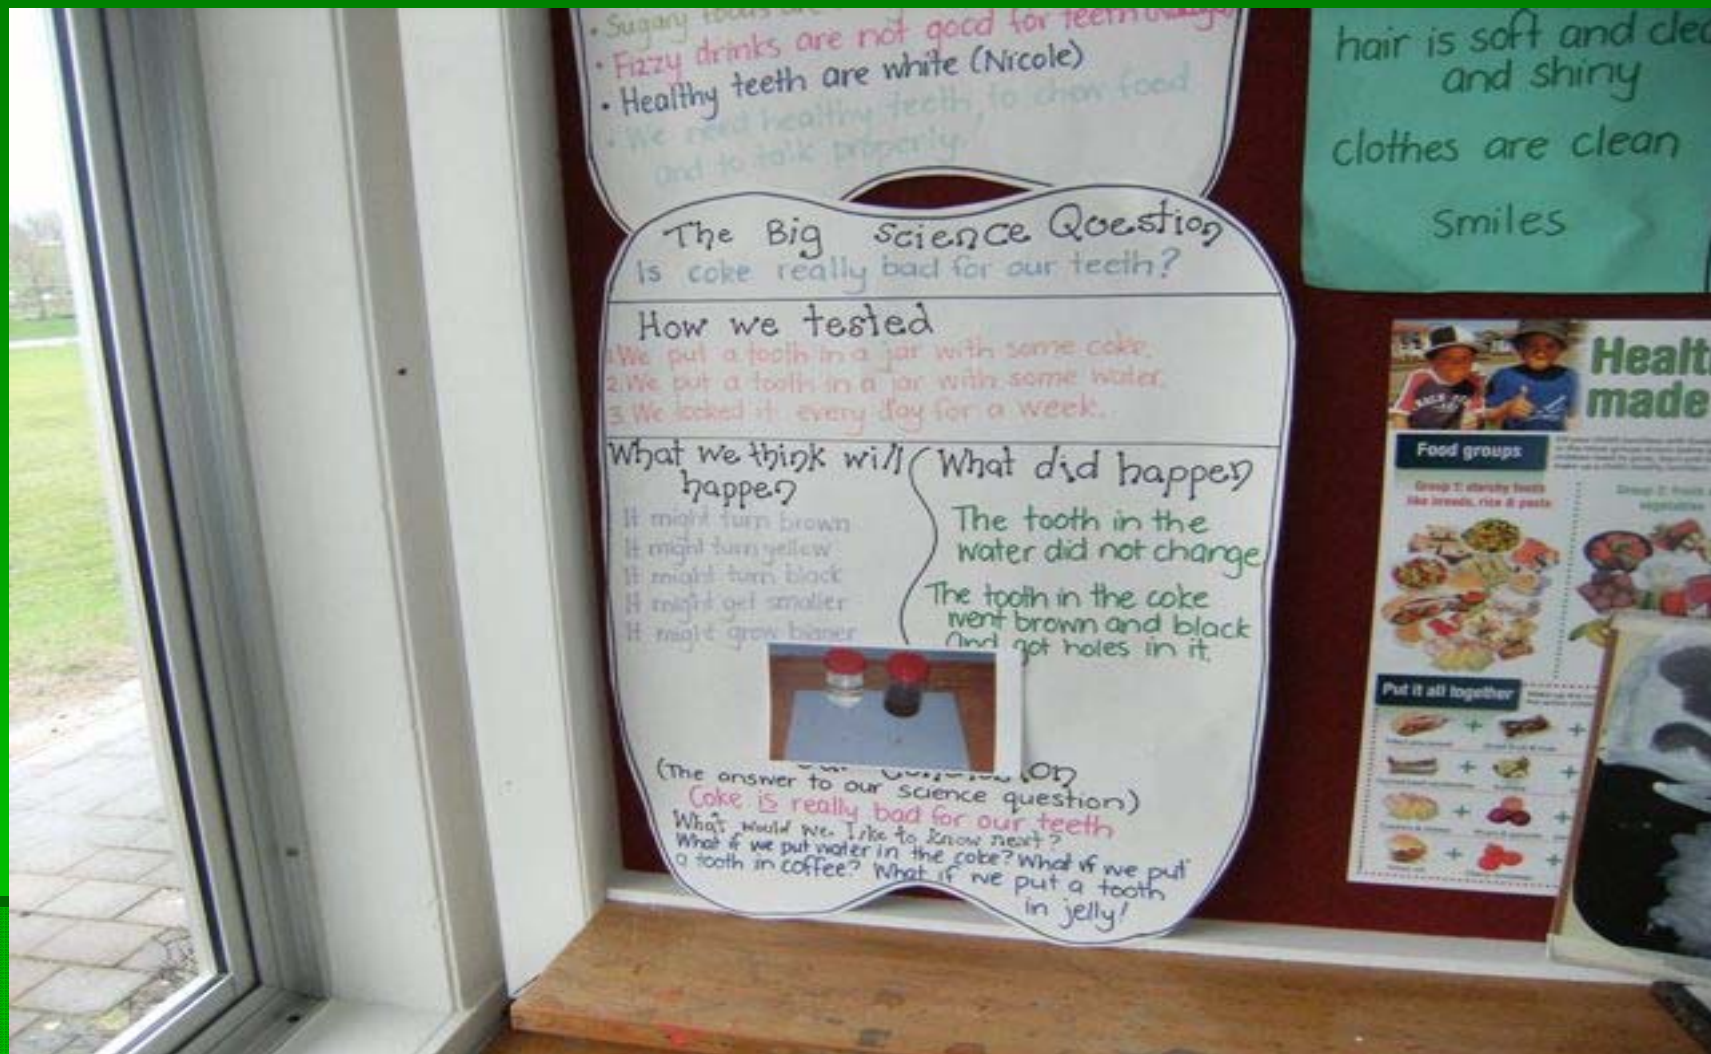 • Sugary foods are
• Fizzy drinks are not good for teeth
• Healthy teeth are white (Nicole)
• We need healthy teeth to chew food
and to talk properly.
The Big Science Question
Is coke really bad for our teeth?
How we tested
1. We put a tooth in a jar with some coke.
2. We put a tooth in a jar with some water.
3. We looked it every day for a week.
What we think will
happen
It might turn brown
It might turn yellow
It might turn black
It might get smaller
It might grow bigger
What did happen
The tooth in the
water did not change
The tooth in the coke
went brown and black
and got holes in it.
(The answer to our science question)
Coke is really bad for our teeth
What would we like to know next?
What if we put water in the coke? What if we put
a tooth in coffee? What if we put a tooth
in jelly!
hair is soft and clea
and shiny
clothes are clean
smiles
Healt
made
Food groups
Group 1: starchy foods
like breads, rice & pasta
Group 2: fruit
vegetables
Put it all together